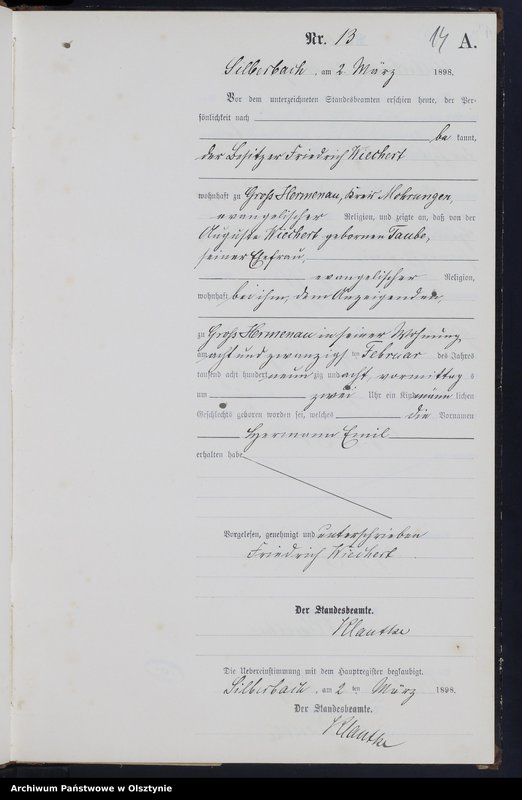 Nr. 13
14 A.
Silberbach, am 2 März 1898.
Vor dem unterzeichneten Standesbeamten erschien heute, der Per-
sönlichkeit nach
be kannt,
der Besitzer Friedrich Wiechert
wohnhaft zu Groß Hermenau, Kreis Mohrungen,
evangelischer Religion, und zeigte an, daß von der
Auguste Wiechert gebornen Taube,
seiner Ehefrau,
evangelischer Religion,
wohnhaft bei ihm, dem Anzeigenden,
zu Groß Hermenau in seiner Wohnung
am acht und zwanzigs ten Februar des Jahres
tausend acht hundert neun zig und acht, vormittag s
um zwei Uhr ein Kind männ lichen
Geschlechts geboren worden sei, welches die Vornamen
Hermann Emil
erhalten habe
Vorgelesen, genehmigt und unterschrieben
Friedrich Wiechert
Der Standesbeamte.
Klautke
Die Uebereinstimmung mit dem Hauptregister beglaubigt.
Silberbach, am 2 ten März 1898.
Der Standesbeamte.
Klautke
Archiwum Państwowe w Olsztynie